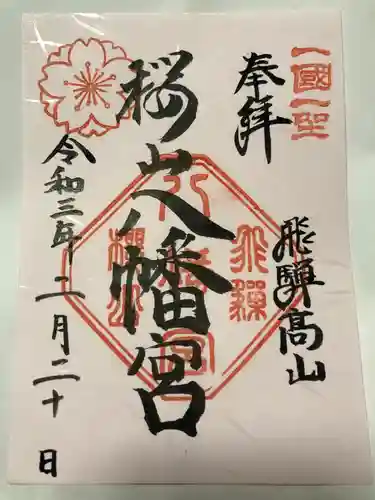 一國一聖
奉拝
飛騨髙山
桜山八幡宮
飛騨
八幡宮
櫻山
令和三年二月二十日